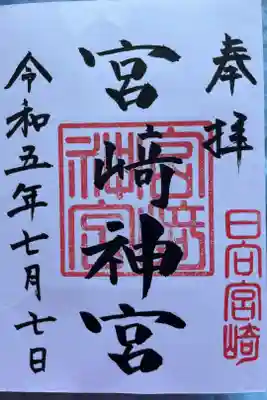 奉拝
日向宮崎
宮﨑神宮
宮崎神宮
令和五年七月七日